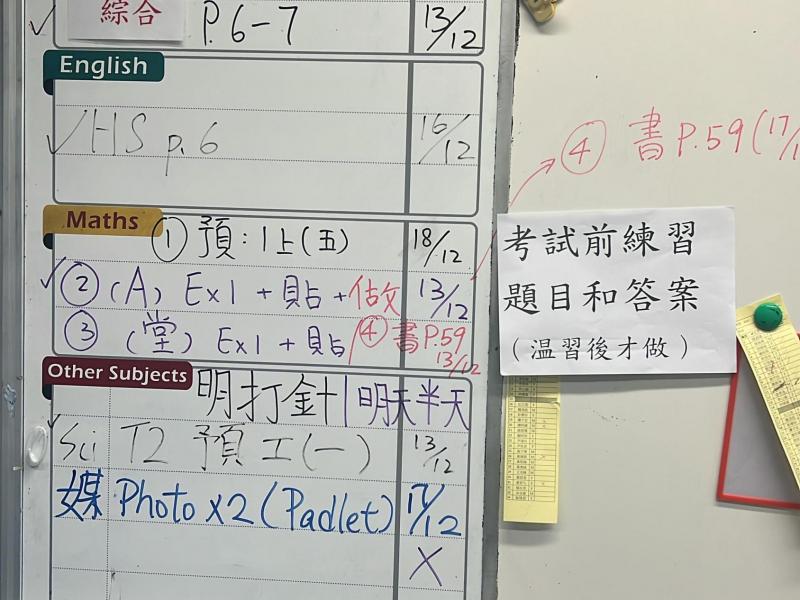 ✓ 綜合 P.6-7 13/12
English
✓ HS p.6 16/12
④ 書P.59(17/1
Maths
① 預:1上(五) 18/12
✓② (A) Ex1 + 貼 + 做 13/12
③ (堂) Ex1 + 貼 ④ 書P.59 13/12
考試前練習
題目和答案
(温習後才做)
Other Subjects
明打針 | 明天半天
✓ Sci T2 預工(一) 13/12
媒 Photo x2 (Padlet) 17/12
X